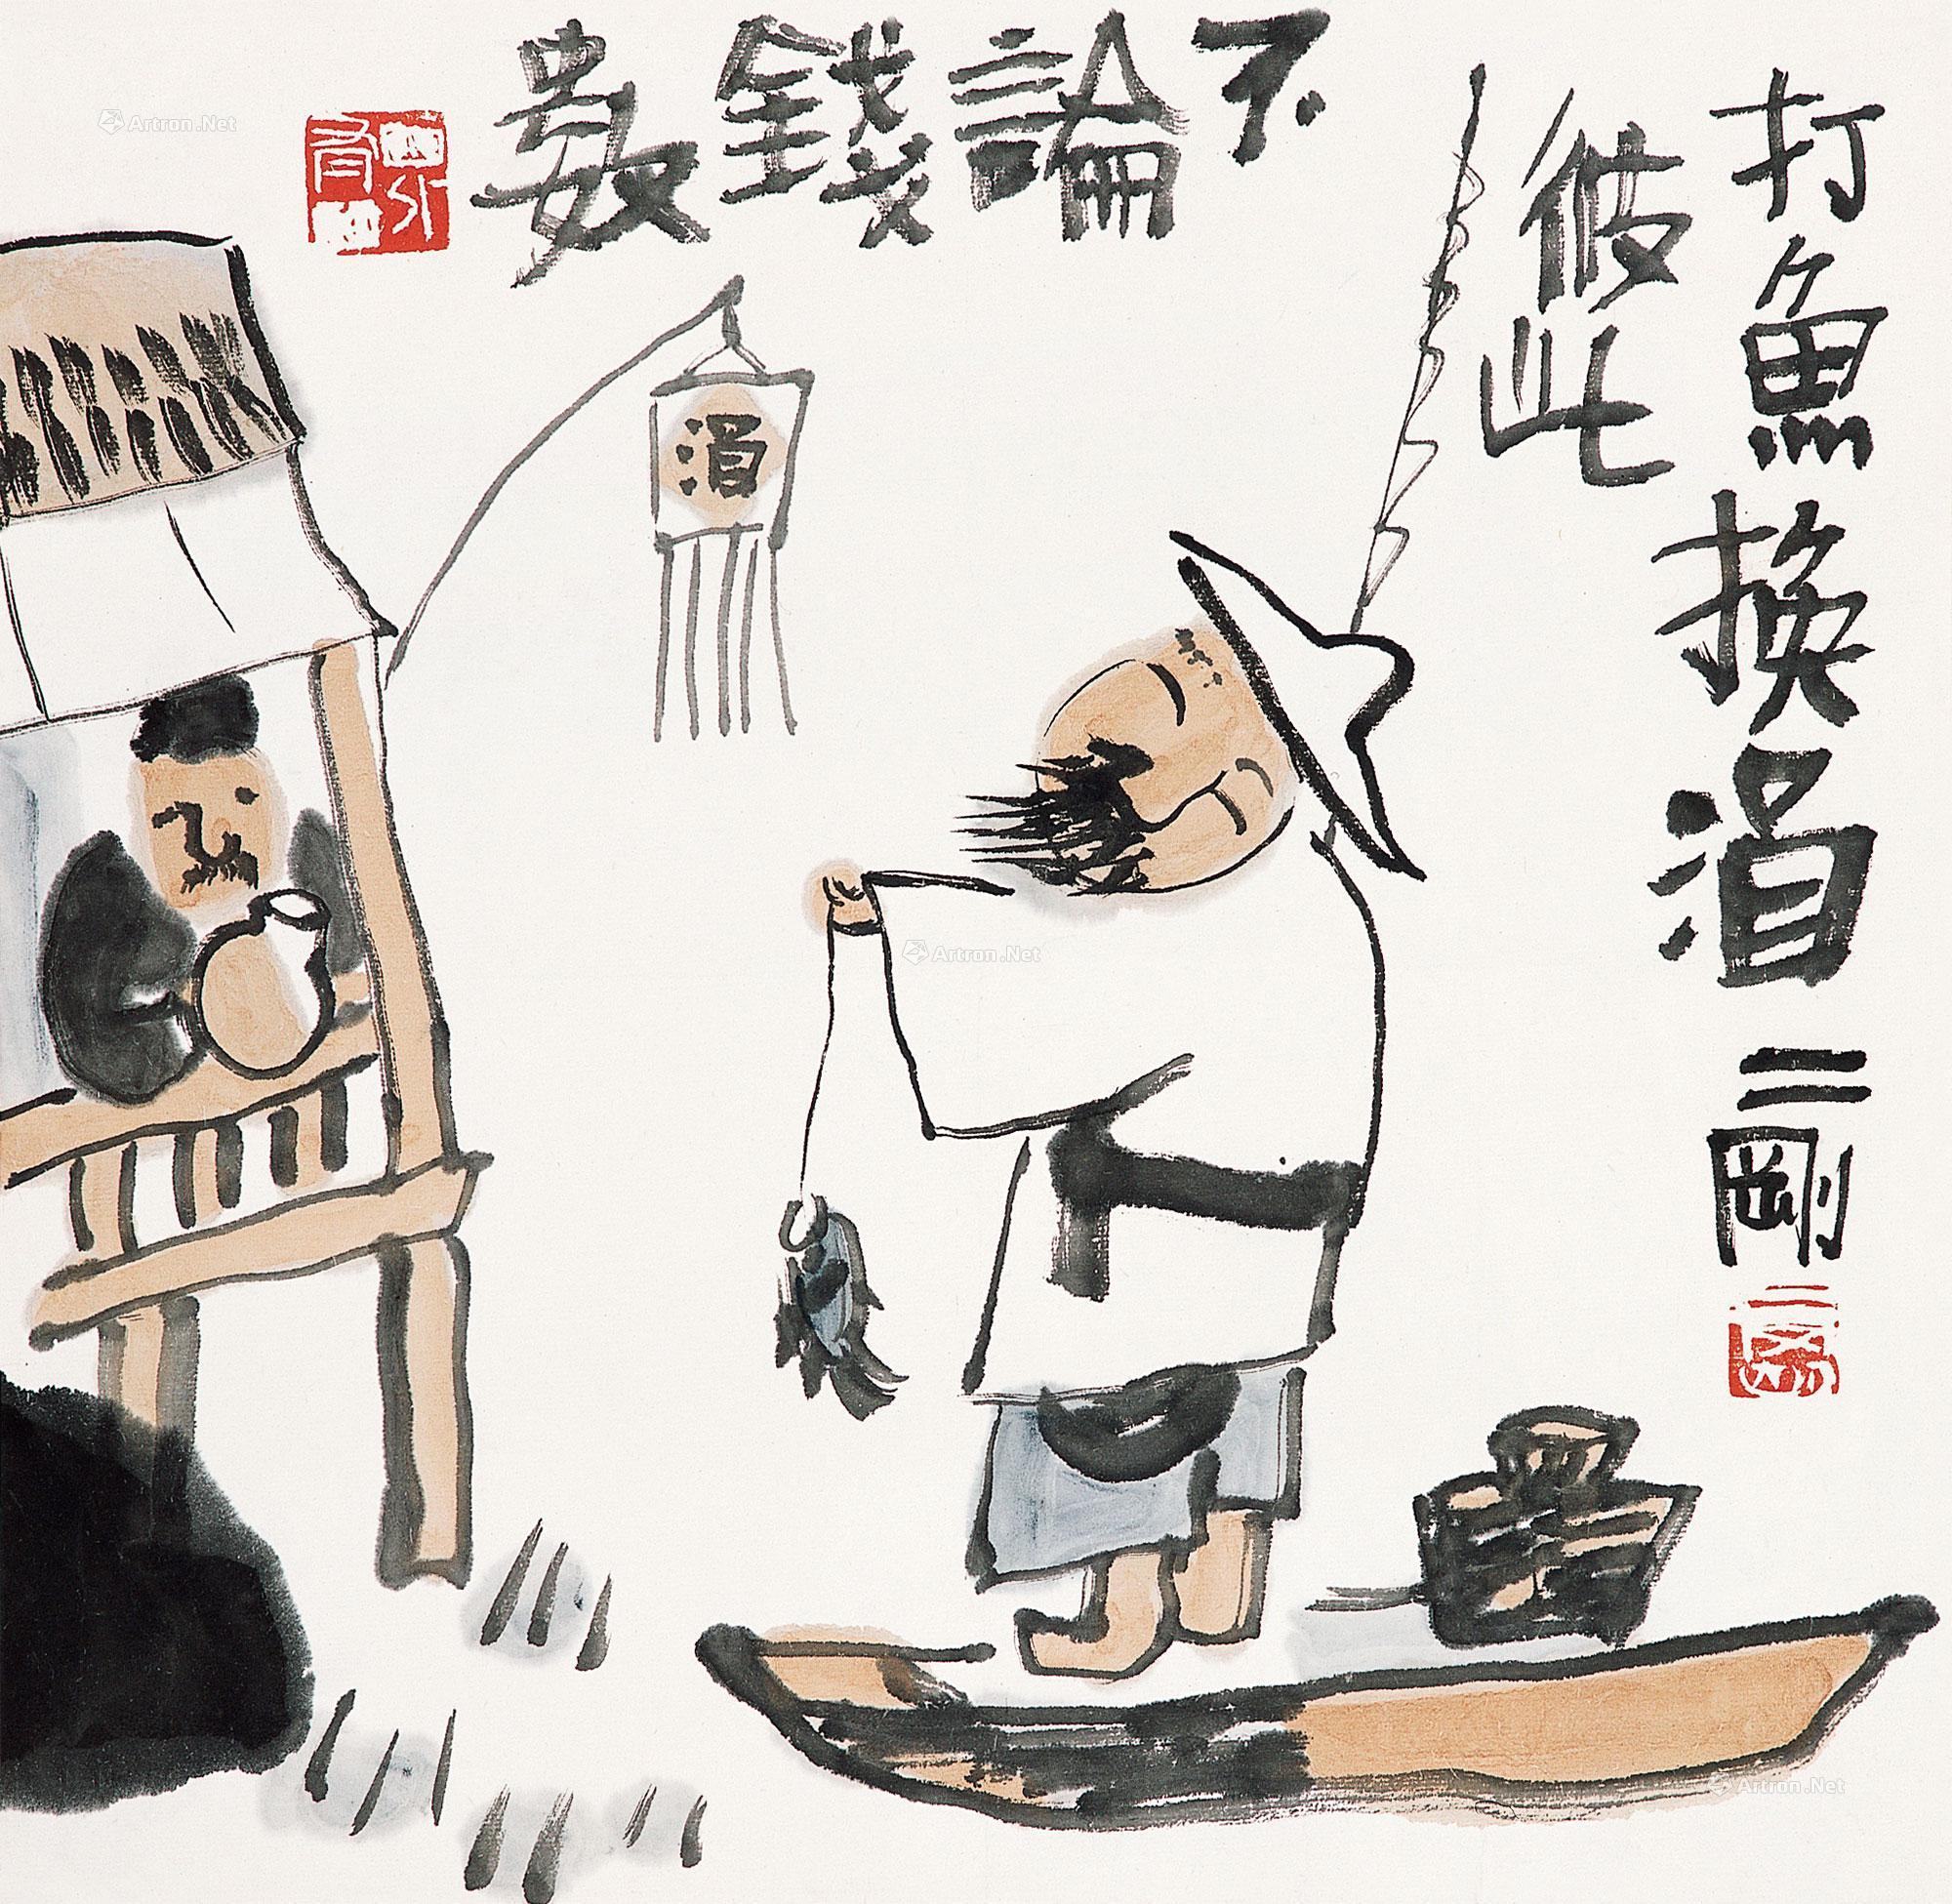 打魚換酒
二剛
彼此
不論錢數
酒
Artron.Net
Artron.Net
Artron.Net